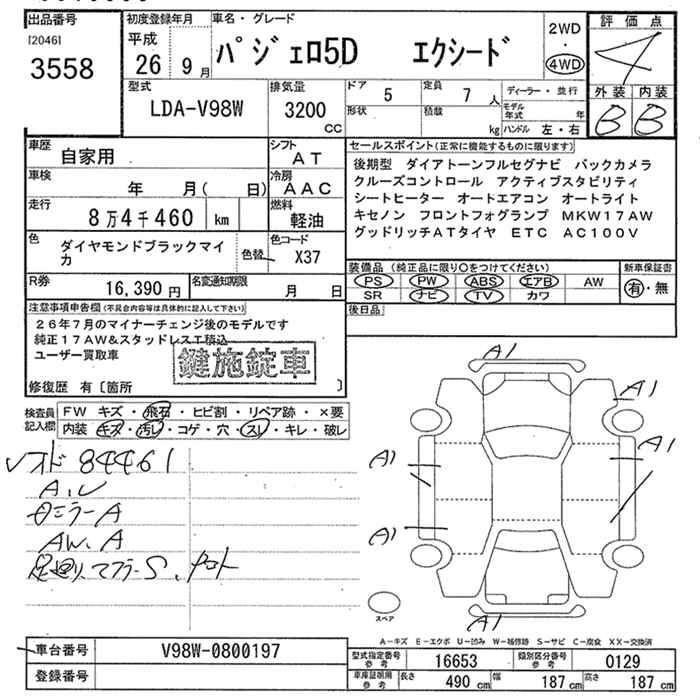 出品番号
[2046]
3558
初度登録年月
平成
26 9月
車名・グレード
パジェロ5D エクシード
2WD
・
4WD
評価点
4
外装 内装
B B
型式
LDA-V98W
排気量
3200
CC
ドア 5
定員 7人
形状
積載 kg
ディーラー・並行
モデル年式 年
ハンドル 左・右
車歴
自家用
シフト
AT
車検
年 月( 日)
冷房
AAC
走行
8万4千460 km
燃料
軽油
色
ダイヤモンドブラックマイカ
色替
色コード
X37
R券
16,390円
名変通知期限
月 日
セールスポイント(正常に機能するものに限ります)
後期型 ダイアトーンフルセグナビ バックカメラ
クルーズコントロール アクティブスタビリティ
シートヒーター オートエアコン オートライト
キセノン フロントフォグランプ MKW17AW
グッドリッチATタイヤ ETC AC100V
装備品(純正品に限り○をつけてください)
PS PW ABS エアB AW
SR ナビ TV カワ
新車保証書
有・無
後日品
注意事項申告欄(不具合内容等は具体的に記入して下さい)
26年7月のマイナーチェンジ後のモデルです
純正17AW&スタッドレスT積込
ユーザー買取車
鍵施錠車
修復歴 有〔箇所 〕
検査員記入欄
FW キズ・飛石・ヒビ割・リペア跡・×要
内装 キズ・汚レ・コゲ・穴・スレ・キレ・破レ
オド 84461
A,U
ミラーA
AW.A
足廻り、マフラーS、
A1
A1
A1
A1
A1
A1
スペア
A-キズ E-エクボ U-凹み W-補修跡 S-サビ C-腐食 XX-交換済
車台番号
V98W-0800197
登録番号
型式指定番号
参考
16653
類別区分番号
参考
0129
車庫証明用
参考
長さ 490cm
幅 187cm
高さ 187cm